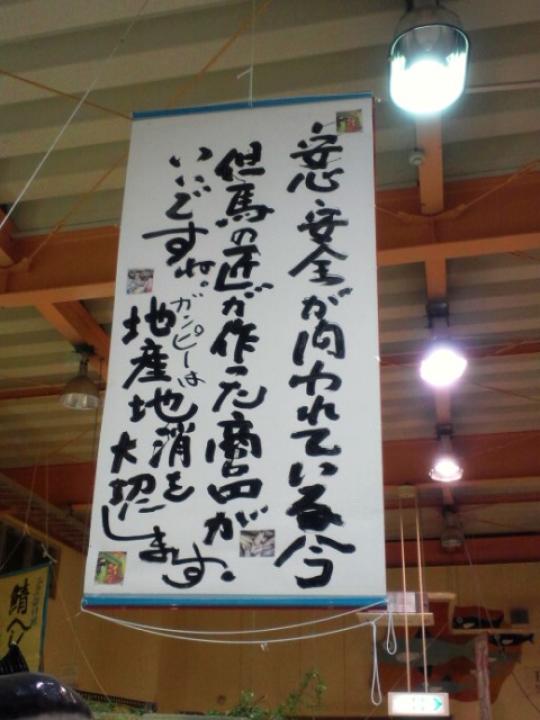 安心・安全が問われている今
但馬の匠が作った商品が
いいですね。
ガンピーは
地産地消を
大切にします。
鯖へ